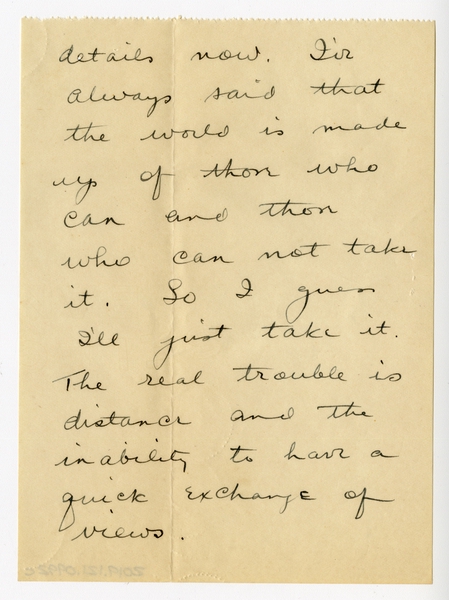 details now. I've
always said that
the world is made
up of those who
can and those
who can not take
it. So I guess
I'll just take it.
The real trouble is
distance and the
inability to have a
quick exchange of
views.
2019.121.0992c